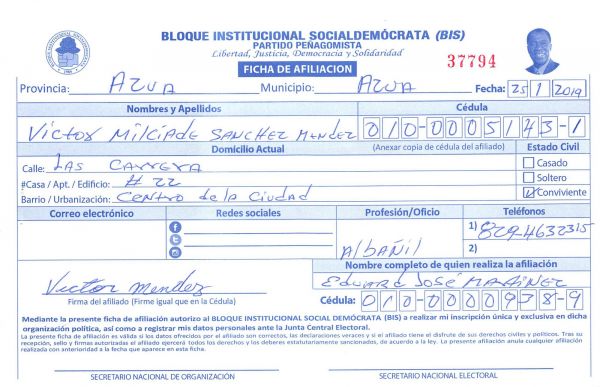 BLOQUE INSTITUCIONAL SOCIALDEMÓCRATA (BIS)
PARTIDO PEÑAGOMISTA
Libertad, Justicia, Democracia y Solidaridad
37794
FICHA DE AFILIACION
Provincia: AZUA Municipio: AZUA Fecha: 25 1 2019
Nombres y Apellidos Cédula
Victor Milciade SANCHEZ Mendez 010-0005143-1
Domicilio Actual (Anexar copia de cédula del afiliado) Estado Civil
Calle: LAS CARRERA Casado
#Casa / Apt. / Edificio: # 22 Soltero
Barrio / Urbanización: Centro de la Ciudad Conviviente
Correo electrónico Redes sociales Profesión/Oficio Teléfonos
1) 829-4632315
Albañil 2)
Nombre completo de quien realiza la afiliación
Victor Mendez Eduard José MARTINEZ
Firma del afiliado (Firme igual que en la Cédula) Cédula: 010-0000938-9
Mediante la presente ficha de afiliación autorizo al BLOQUE INSTITUCIONAL SOCIAL DEMÓCRATA (BIS) a realizar mi inscripción única y exclusiva en dicha
organización política, así como a registrar mis datos personales ante la Junta Central Electoral.
La presente ficha de afiliación es válida si los datos ofrecidos por el afiliado son correctos, las declaraciones veraces y si el afiliado tiene el disfrute de sus derechos civiles y políticos. Tras su
recepción, sello y firmas autorizadas el afiliado ejercerá todos los derechos y los deberes estatutariamente sancionados, de acuerdo a la ley. La presente afiliación anula cualquier afiliación
realizada con anterioridad a la fecha que aparece en esta ficha.
SECRETARIO NACIONAL DE ORGANIZACIÓN SECRETARIO NACIONAL ELECTORAL